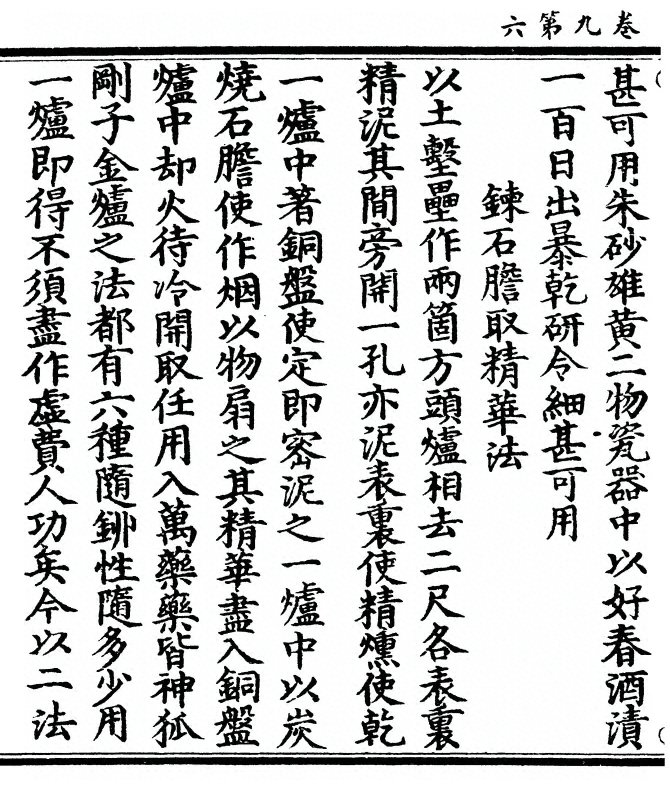 卷九第六
甚可用朱砂雄黄二物瓷器中以好春酒漬
一百日出暴乾研令細甚可用
鍊石膽取精華法
以土墼壘作兩箇方頭爐相去二尺各表裏
精泥其間旁開一孔亦泥表裏使精燻使乾
一爐中著銅盤使定即密泥之一爐中以炭
燒石膽使作烟以物扇之其精華盡入銅盤
爐中却火待冷開取任用入萬藥藥皆神狐
剛子金爐之法都有六種隨鉚性隨多少用
一爐即得不須盡作虚費人功矣今以二法